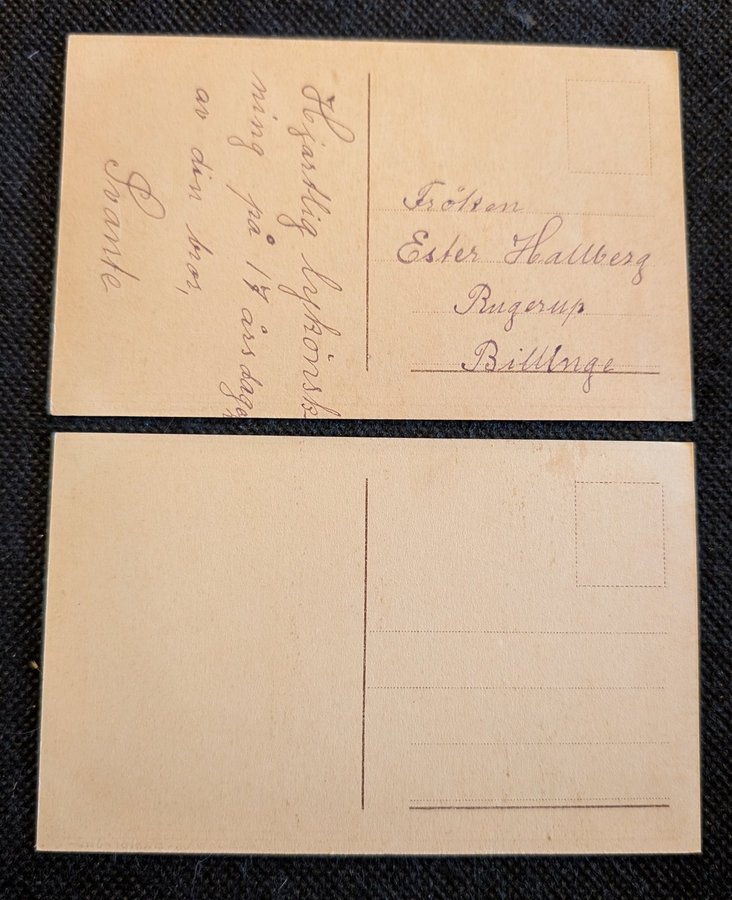 Hjärtlig lykönsk
ning på 17 årsdagen
av din bror,
Svante
Fröken
Ester Hallberg
Rugerup
Billinge